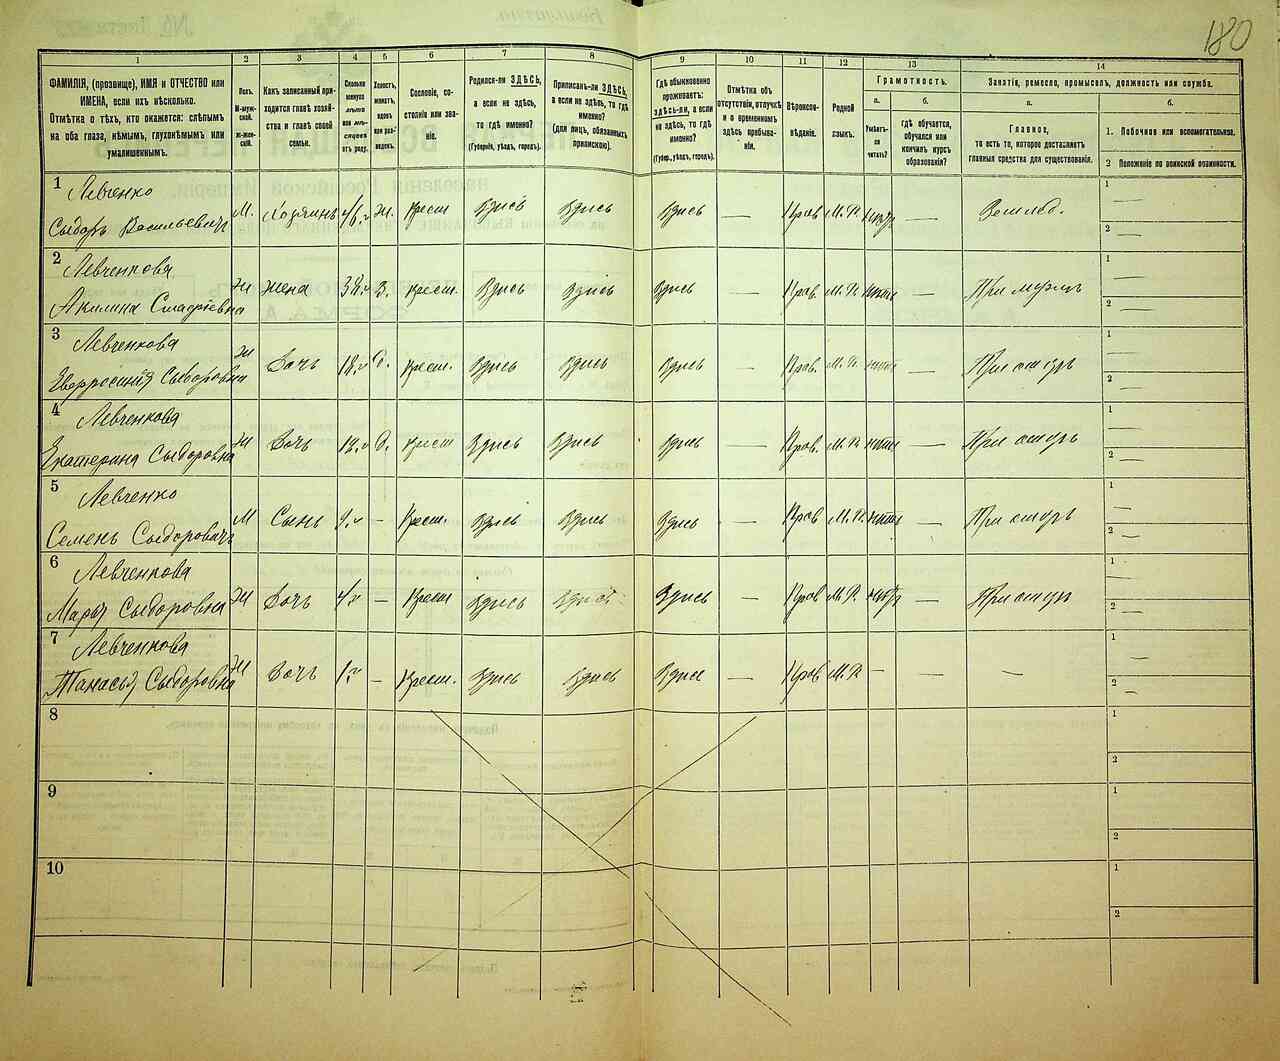 180
1
2
3
4
5
6
7
8
9
10
11
12
13
14
ФАМИЛІЯ, (прозвище), ИМЯ и ОТЧЕСТВО или
ИМЕНА, если ихъ нѣсколько.
Отмѣтка о тѣхъ, кто окажется: слѣпымъ
на оба глаза, нѣмымъ, глухонѣмымъ или
умалишеннымъ.
Полъ.
М-муж-
ской.
ж-жен-
скій.
Какъ записанный при-
ходится главѣ хозяй-
ства и главѣ своей
семьи.
Сколько
минуло
лѣтъ
или мѣ-
сяцевъ
отъ роду.
Холостъ,
женатъ,
вдовъ
или раз-
веденъ.
Сословіе, со-
стояніе или зва-
ніе.
Родился-ли ЗДѢСЬ,
а если не здѣсь,
то гдѣ именно?
(Губернія, уѣздъ, городъ).
Приписанъ-ли ЗДѢСЬ,
а если не здѣсь, то гдѣ
именно?
(для лицъ, обязанныхъ
припискою).
Гдѣ обыкновенно
проживаетъ:
ЗДѢСЬ-ли, а если
не здѣсь, то гдѣ
именно?
(Губер., уѣздъ, городъ).
Отмѣтка объ
отсутствіи, отлучкѣ
и о временномъ
здѣсь пребыва-
ніи.
Вѣроиспо-
вѣданіе.
Родной
языкъ.
Грамотность.
а.
б.
Умѣетъ-
ли
читать?
гдѣ обучается,
обучался или
кончилъ курсъ
образованія?
Занятіе, ремесло, промыселъ, должность или служба.
а.
б.
Главное,
то есть то, которое доставляетъ
главныя средства для существованія.
1. Побочное или вспомогательное.
2 Положеніе по воинской повинности.
1 Левченко
Сыдоръ Васильевичъ М. Хозяинъ ж. Крест Здись Здись Здись — Прав М. Р. — Землед. 1 — 2 —
2 Левченкова
Акилина Жи жена 38 З. Крест. Здись Здись Здись — Прав. М. Р. — При мужъ 1 — 2 —
3 Левченкова
Сыдоровна Жи Дочъ 18 д. Крест. Здись Здись Здись — Прав. М. Р. — При отцъ 1 — 2 —
4 Левченкова
Екатерина Сыдоровна Жи Дочъ д. Крест Здись Здись Здись — Прав. М. Р. — При отцъ 1 — 2 —
5 Левченко
Семенъ Сыдоровичъ М Сынъ 9 — Крест. Здись Здись Здись — Прав М. Р. — При отцъ 1 — 2 —
6 Левченкова
Марья Сыдоровна Жи Дочъ 4 — Крест Здись Здись — Прав М. Р. — При отцъ 1 — 2 —
7 Левченкова
Сыдоровна Жи Дочъ 1 — Крест. Здись Здись — Прав М. Р — — — 1 — 2 —
8 1 2
9 1 2
10 1 2